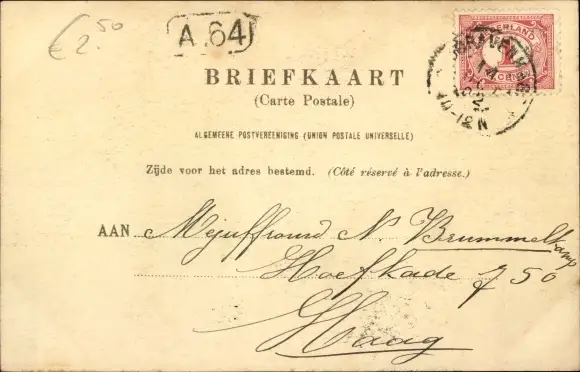 € 2.50
A.64
NEDERLAND
CENT
BRIEFKAART
(Carte Postale)
ALGEMEENE POSTVEREENIGING (UNION POSTALE UNIVERSELLE)
Zijde voor het adres bestemd. (Côté réservé à l'adresse.)
AAN Mejuffrouw N. Brummelkamp
Hoefkade 750
Haag